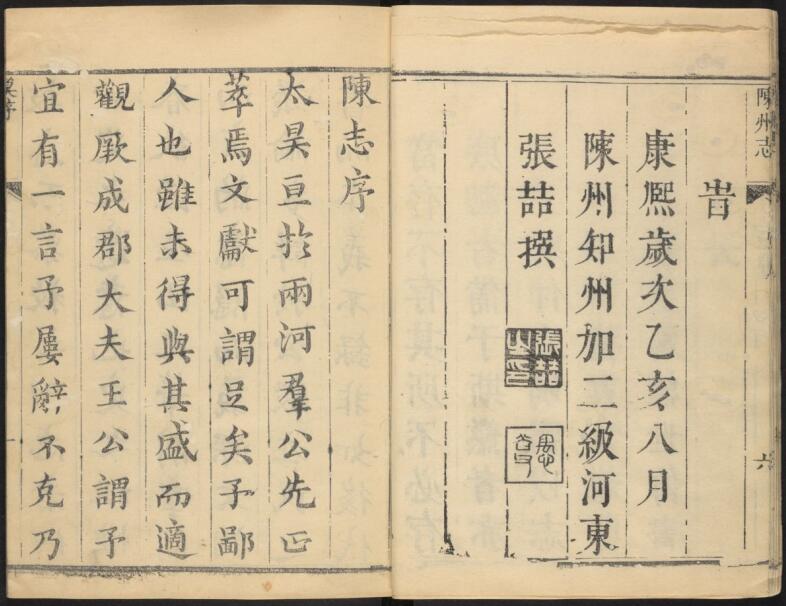 陳州志
六
旹
康熙歲次乙亥八月
陳州知州加二級河東
張喆撰
張喆之印
陳志序
太昊亘於兩河羣公先正
萃焉文獻可謂足矣予鄙
人也雖未得與其盛而適
觀厥成郡大夫王公謂予
宜有一言予屢辭不克乃